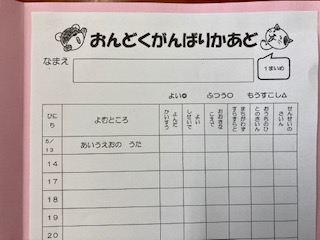 おんどくがんばりかあど
なまえ
1まいめ
よい◎ ふつう○ もうすこし△
ひにち
よむところ
よんだかいすう
よいしせいで
おおきなこえで
まちがわずすらすらと
おうちのひとのさいん
せんせいのさいん
5/13
あいうえおの うた
14
17
18
19
20